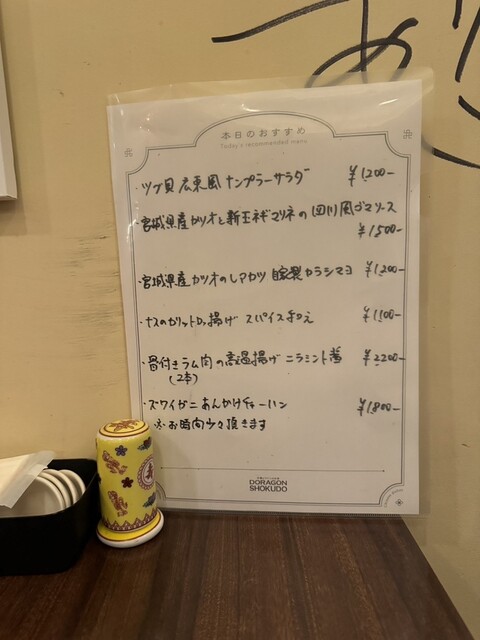 本日のおすすめ
Today's recommended menu
・ツブ貝 広東風ナンプラーサラダ ¥1,200-
・宮城県産カツオと新玉ネギマリネの四川風ゴマソース
¥1,500-
・宮城県産カツオのレアカツ 自家製カラシマヨ ¥1,200-
・ナスのカリット揚げ スパイス和え ¥1,100-
・骨付きラム肉の高温揚げ ニラミント醤 ¥2,200-
(2本)
・ズワイガニあんかけチャーハン ¥1,800-
※お時間少々頂きます
DORAGON
SHOKUDO